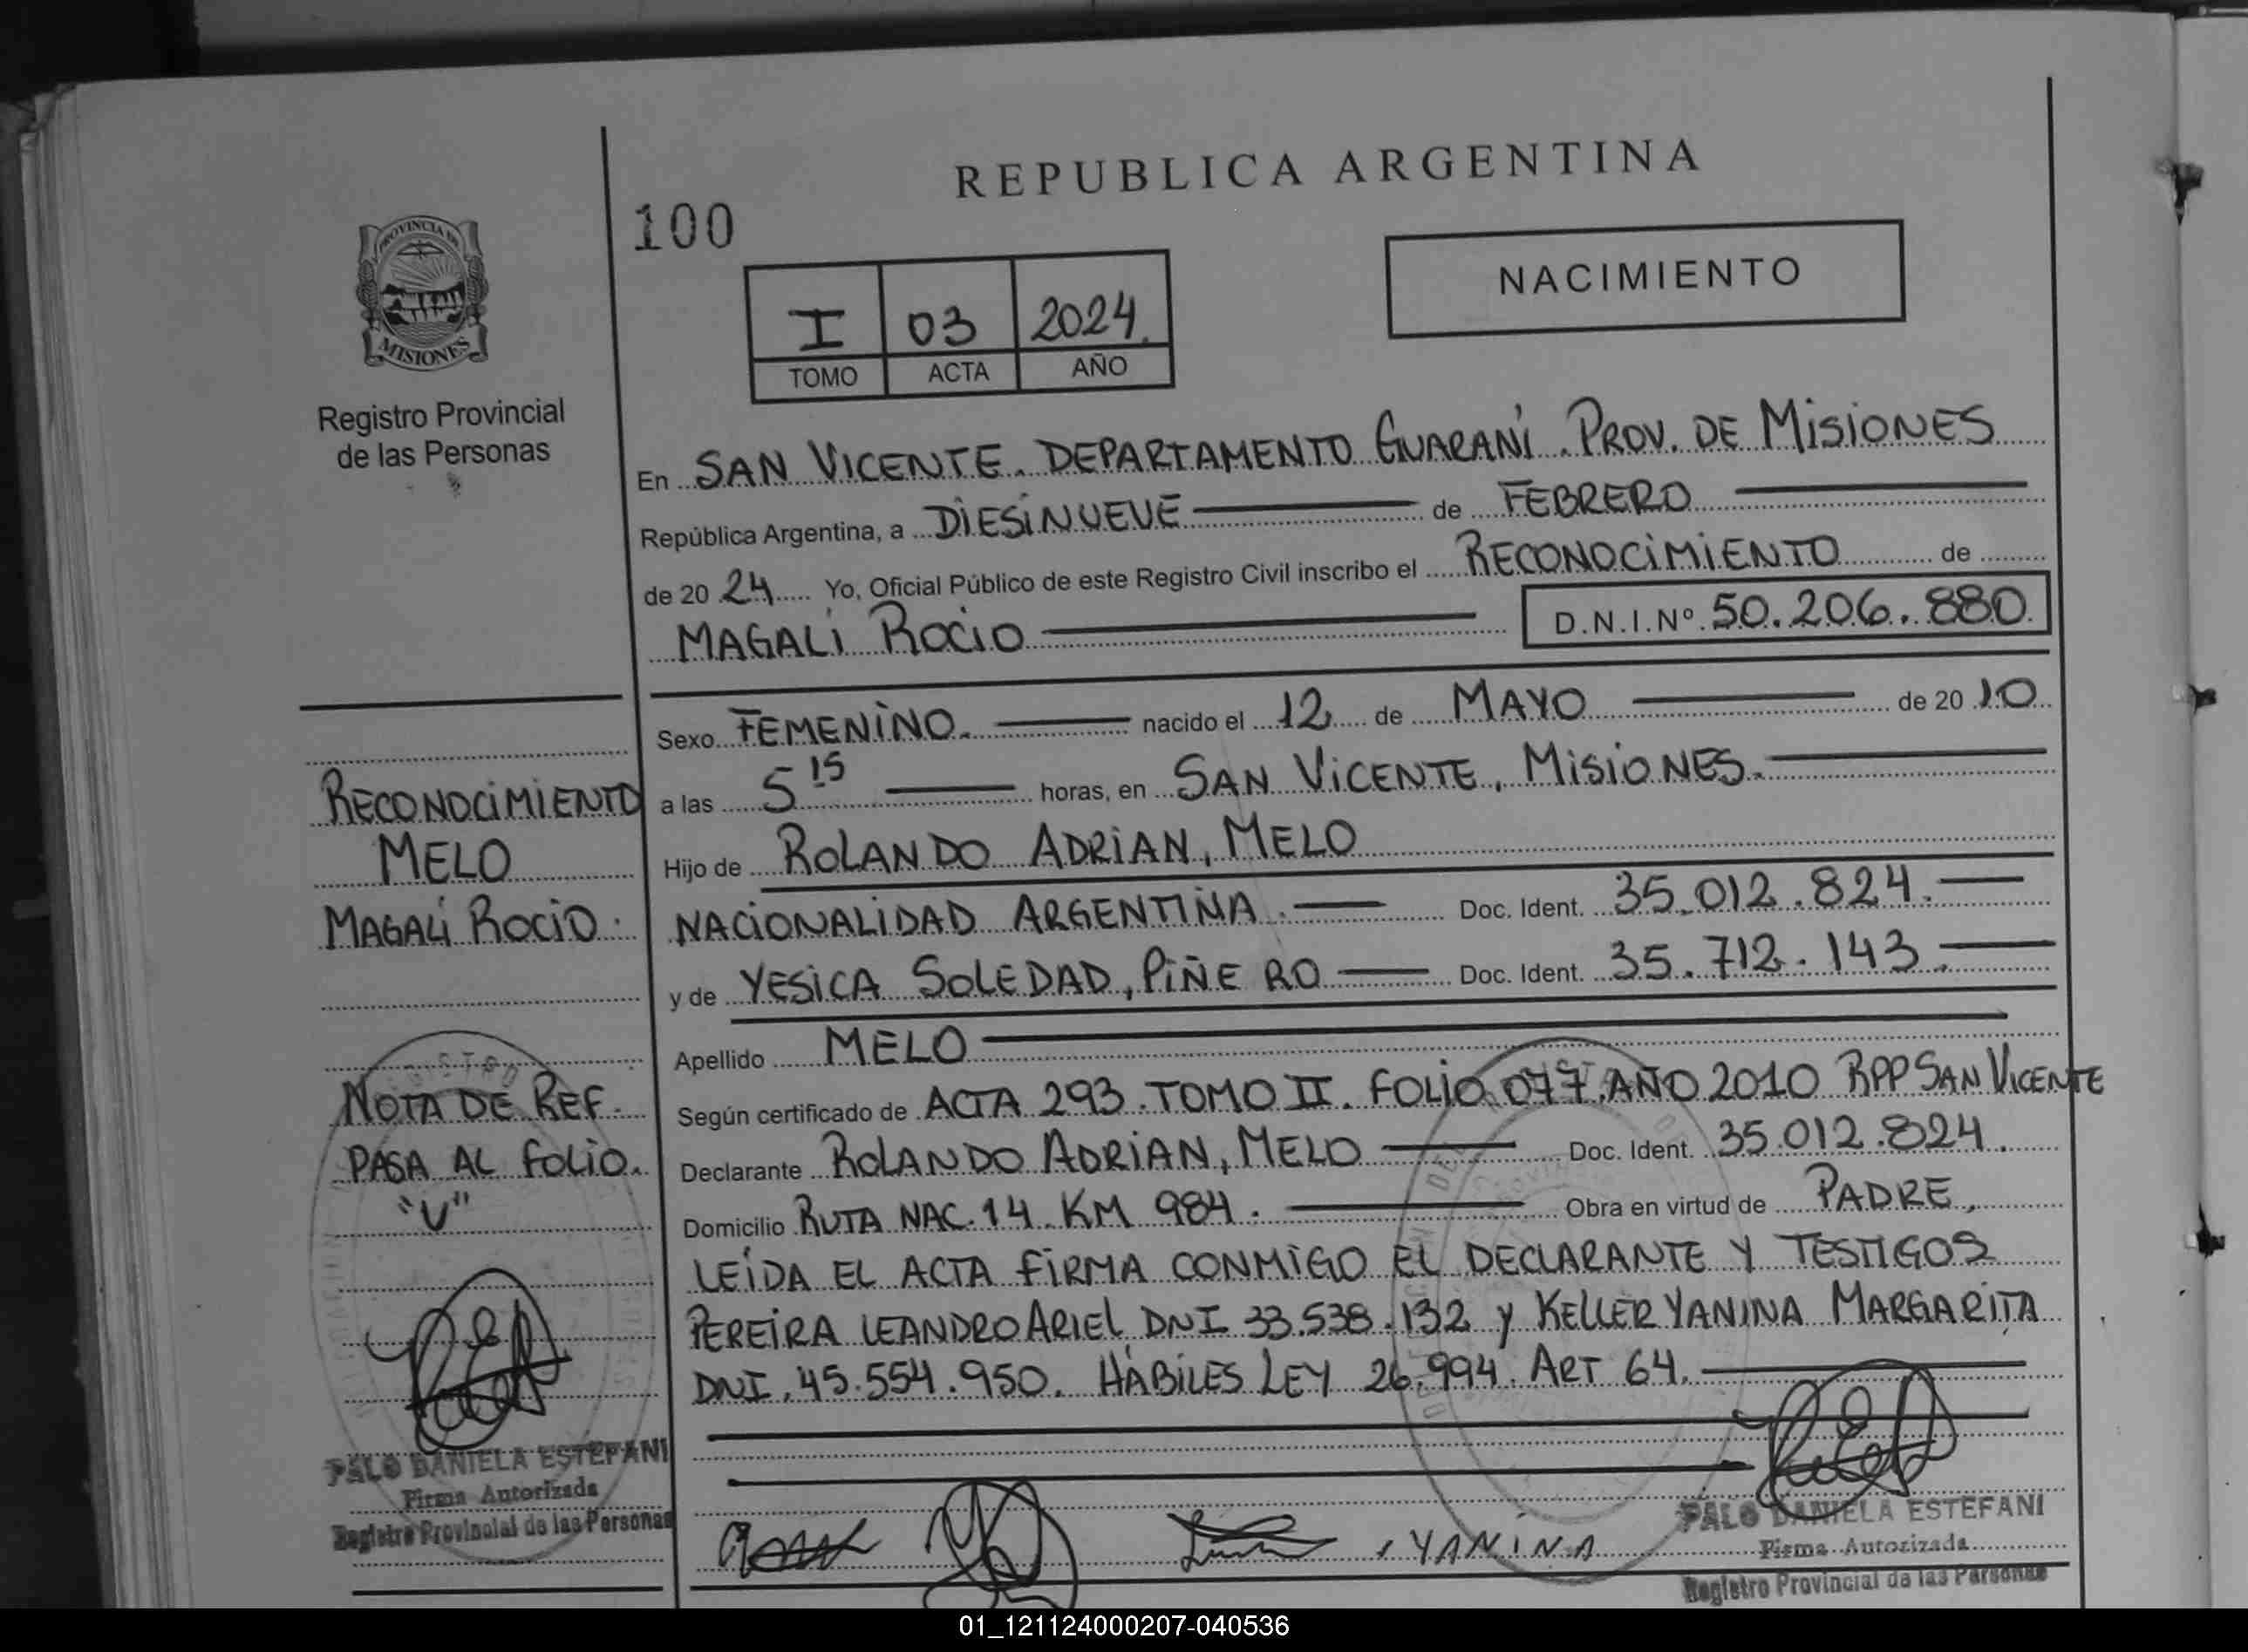 REPUBLICA ARGENTINA
100
NACIMIENTO
I 03 2024
TOMO ACTA AÑO
PROVINCIA DE
MISIONES
Registro Provincial
de las Personas
En SAN VICENTE. DEPARTAMENTO GUARANÍ. PROV. DE MISIONES
República Argentina, a DIESINUEVE de FEBRERO
de 20 24 Yo, Oficial Público de este Registro Civil inscribo el RECONOCIMIENTO de
MAGALÍ ROCIO D.N.I.Nº 50.206.880
Sexo FEMENINO. nacido el 12 de MAYO de 20 10
a las 5 15 horas, en SAN VICENTE, MISIONES.
Hijo de ROLANDO ADRIAN, MELO
NACIONALIDAD ARGENTINA. Doc. Ident. 35.012.824.
y de YESICA SOLEDAD, PIÑERO Doc. Ident. 35.712.143.
Apellido MELO
Según certificado de ACTA 293. TOMO II. FOLIO 077. AÑO 2010 RPP SAN VICENTE
Declarante ROLANDO ADRIAN, MELO Doc. Ident. 35.012.824.
Domicilio RUTA NAC. 14 KM 984. Obra en virtud de PADRE.
LEÍDA EL ACTA FIRMA CONMIGO EL DECLARANTE Y TESTIGOS
PEREIRA LEANDRO ARIEL DNI 33.538.132 y KELLER YANINA MARGARITA
DNI. 45.554.950. HÁBILES LEY 26.994. ART 64.
YANINA
PALO DANIELA ESTEFANI
Firma Autorizada
Registro Provincial de las Personas
RECONOCIMIENTO
MELO
MAGALÍ ROCIO.
NOTA DE REF.
PASA AL FOLIO.
"V"
PALO DANIELA ESTEFANI
Firma Autorizada
Registro Provincial de las Personas
01_121124000207-040536